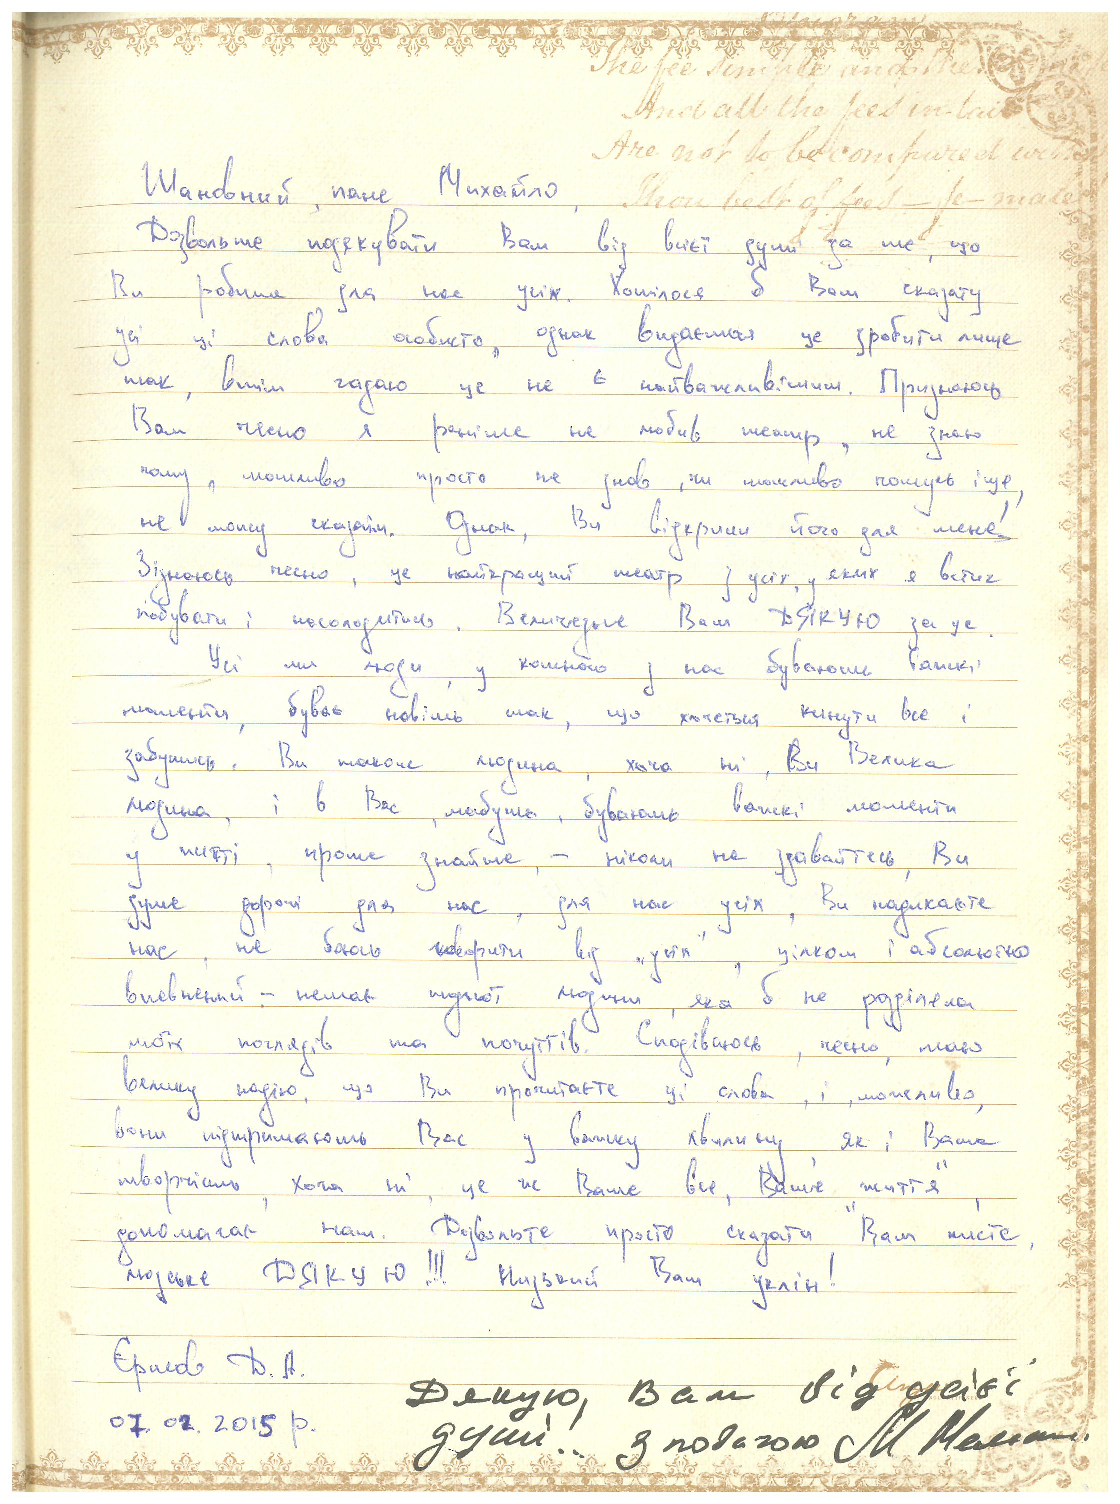 The fee simple and the
And all the fees in-tail
Are not to be compared with
Thou best of fees – fe- male
Шановний, пане Михайло,
Дозвольте подякувати Вам від всієї душі за те, що
Ви робите для нас усіх. Хотілося б Вам сказати
усі ці слова особисто, однак видається це зробити лише
так, втім гадаю це не є найважливішим. Признаюсь
Вам чесно я раніше не любив театр, не знаю
чому, можливо просто не знав, чи можливо чогось іще,
не можу сказати. Однак, Ви відкрили його для мене!
Зізнаюсь чесно, це найкращий театр з усіх, у яких я встиг
побувати і насолодитись. Величезне Вам ДЯКУЮ за це.
Усі ми люди, у кожного з нас бувають важкі
моменти, буває навіть так, що хочеться кинути все і
забутись. Ви також людина, хоча ні, Ви Велика
людина, і в Вас, мабуть, бувають важкі моменти
у житті, проте знайте, – ніколи не здавайтесь, Ви
дуже дорогі для нас, для нас усіх, Ви надихаєте
нас, не боюсь говорити від „усіх", цілком і абсолютно
впевнений – немає жодної людини, яка б не розділяла
моїх поглядів та почуттів. Сподіваюсь, чесно, маю
велику надію, що Ви прочитаєте ці слова, і, можливо,
вони підтримають Вас у важку хвилину, як і Ваша
творчість, хоча ні, це ж Ваше все, Ваше „життя",
допомагає нам. Дозвольте просто сказати Вам чисте,
людське ДЯКУЮ!!! Низький Вам уклін!
Єршов Д.А.
07.02.2015 р.
Дякую, Вам від усієї
душі.. З повагою М